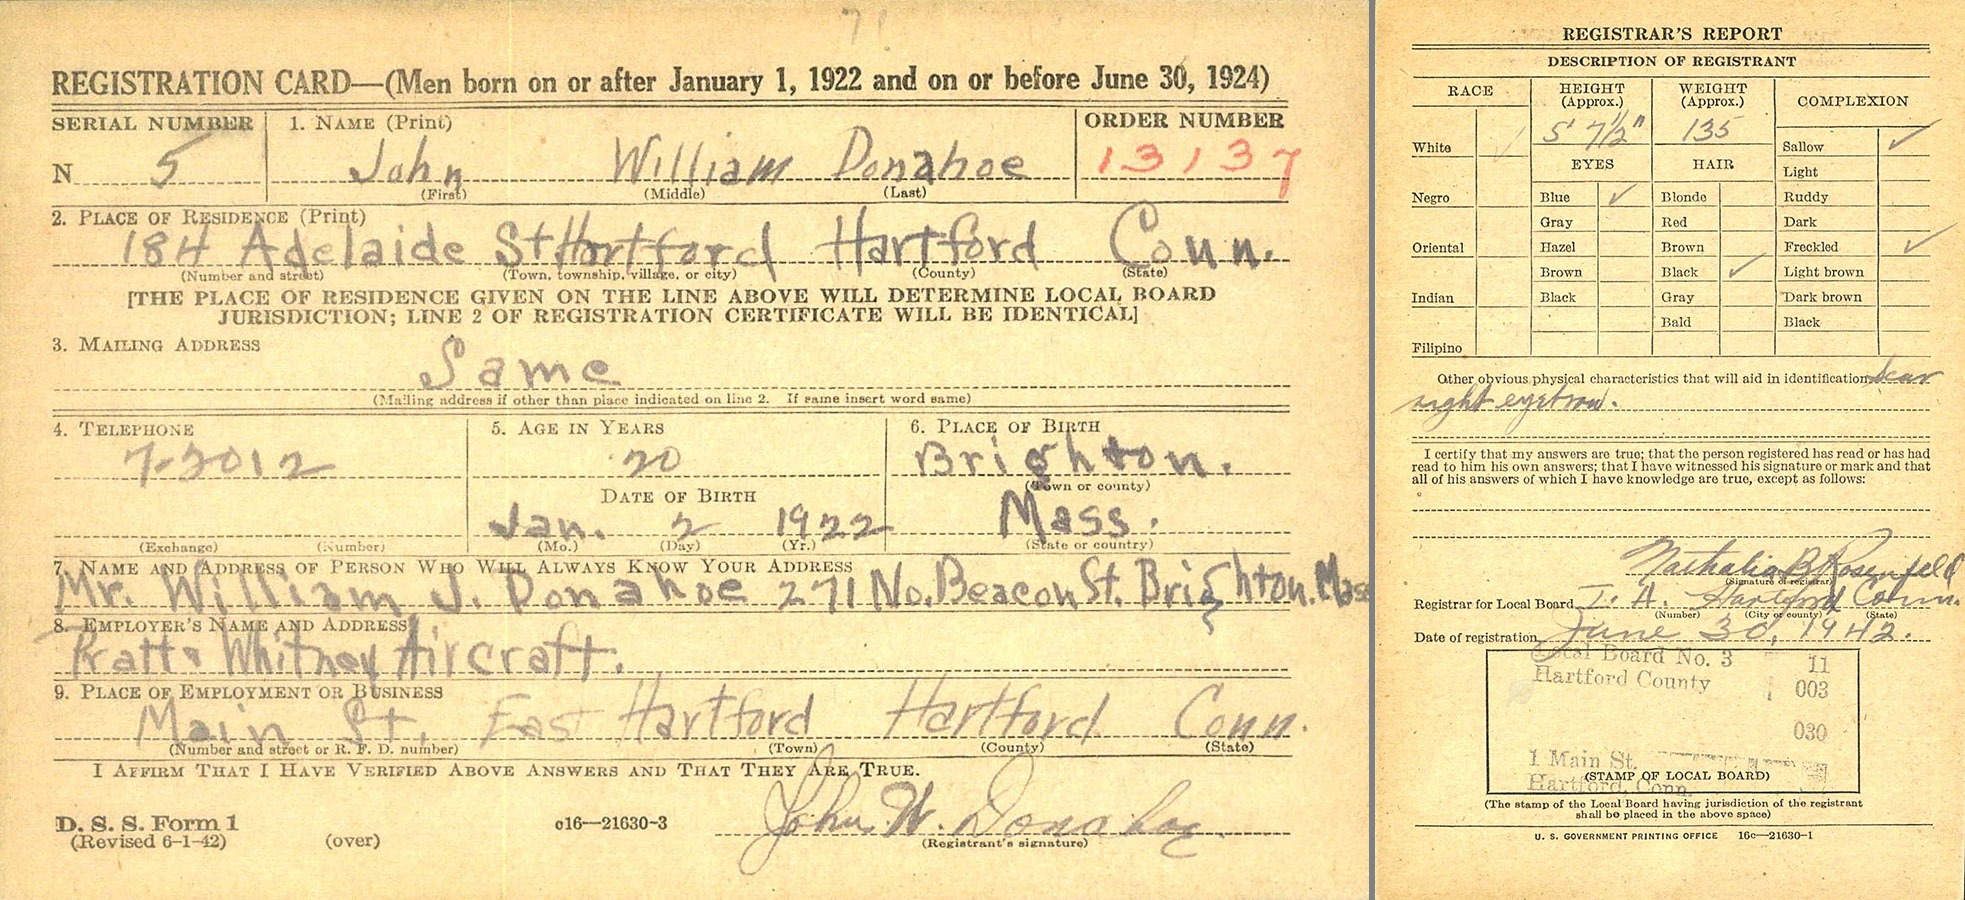 REGISTRATION CARD—(Men born on or after January 1, 1922 and on or before June 30, 1924)
SERIAL NUMBER 1. NAME (Print) ORDER NUMBER
N 5 John William Donahoe 13137
(First) (Middle) (Last)
2. PLACE OF RESIDENCE (Print)
184 Adelaide St Hartford Hartford Conn.
(Number and street) (Town, township, village, or city) (County) (State)
[THE PLACE OF RESIDENCE GIVEN ON THE LINE ABOVE WILL DETERMINE LOCAL BOARD
JURISDICTION; LINE 2 OF REGISTRATION CERTIFICATE WILL BE IDENTICAL]
3. MAILING ADDRESS
Same
(Mailing address if other than place indicated on line 2. If same insert word same)
4. TELEPHONE 5. AGE IN YEARS 6. PLACE OF BIRTH
7-2012 20 Brighton.
(Town or county)
DATE OF BIRTH
Jan. 2 1922 Mass.
(Exchange) (Number) (Mo.) (Day) (Yr.) (State or country)
7. NAME AND ADDRESS OF PERSON WHO WILL ALWAYS KNOW YOUR ADDRESS
Mr. William J. Donahoe 271 No. Beacon St. Brighton. Mass
8. EMPLOYER'S NAME AND ADDRESS
Pratt & Whitney Aircraft.
9. PLACE OF EMPLOYMENT OR BUSINESS
Main St. East Hartford Hartford Conn.
(Number and street or R. F. D. number) (Town) (County) (State)
I AFFIRM THAT I HAVE VERIFIED ABOVE ANSWERS AND THAT THEY ARE TRUE.
John W. Donahoe
D. S. S. Form 1 c16—21630-3
(Revised 6-1-42) (over) (Registrant's signature)
REGISTRAR'S REPORT
DESCRIPTION OF REGISTRANT
RACE HEIGHT (Approx.) WEIGHT (Approx.) COMPLEXION
5' 7½" 135
White ✓ Sallow ✓
EYES HAIR
Light
Negro Blue ✓ Blonde Ruddy
Gray Red Dark
Oriental Hazel Brown Freckled ✓
Brown Black ✓ Light brown
Indian Black Gray Dark brown
Bald Black
Filipino
Other obvious physical characteristics that will aid in identification Scar
right eyebrow.
I certify that my answers are true; that the person registered has read or has had
read to him his own answers; that I have witnessed his signature or mark and that
all of his answers of which I have knowledge are true, except as follows:
Nathalia B Rosenfeld
(Signature of registrar)
Registrar for Local Board I. A. Hartford Conn.
(Number) (City or county) (State)
Date of registration June 30, 1942.
Local Board No. 3 11
Hartford County 003
030
1 Main St.
(STAMP OF LOCAL BOARD)
Hartford, Conn.
(The stamp of the Local Board having jurisdiction of the registrant
shall be placed in the above space)
U. S. GOVERNMENT PRINTING OFFICE 16c—21630-1